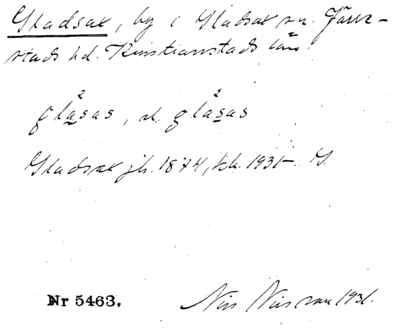 Gladsax, by i Gladsax sn. Järre-
stads hd. Kristianstads län
glåsas, el. glåsas
Gladsax jb. 1874, kk. 1931. S.
Nr 5463. Nils Nilsson 1931.